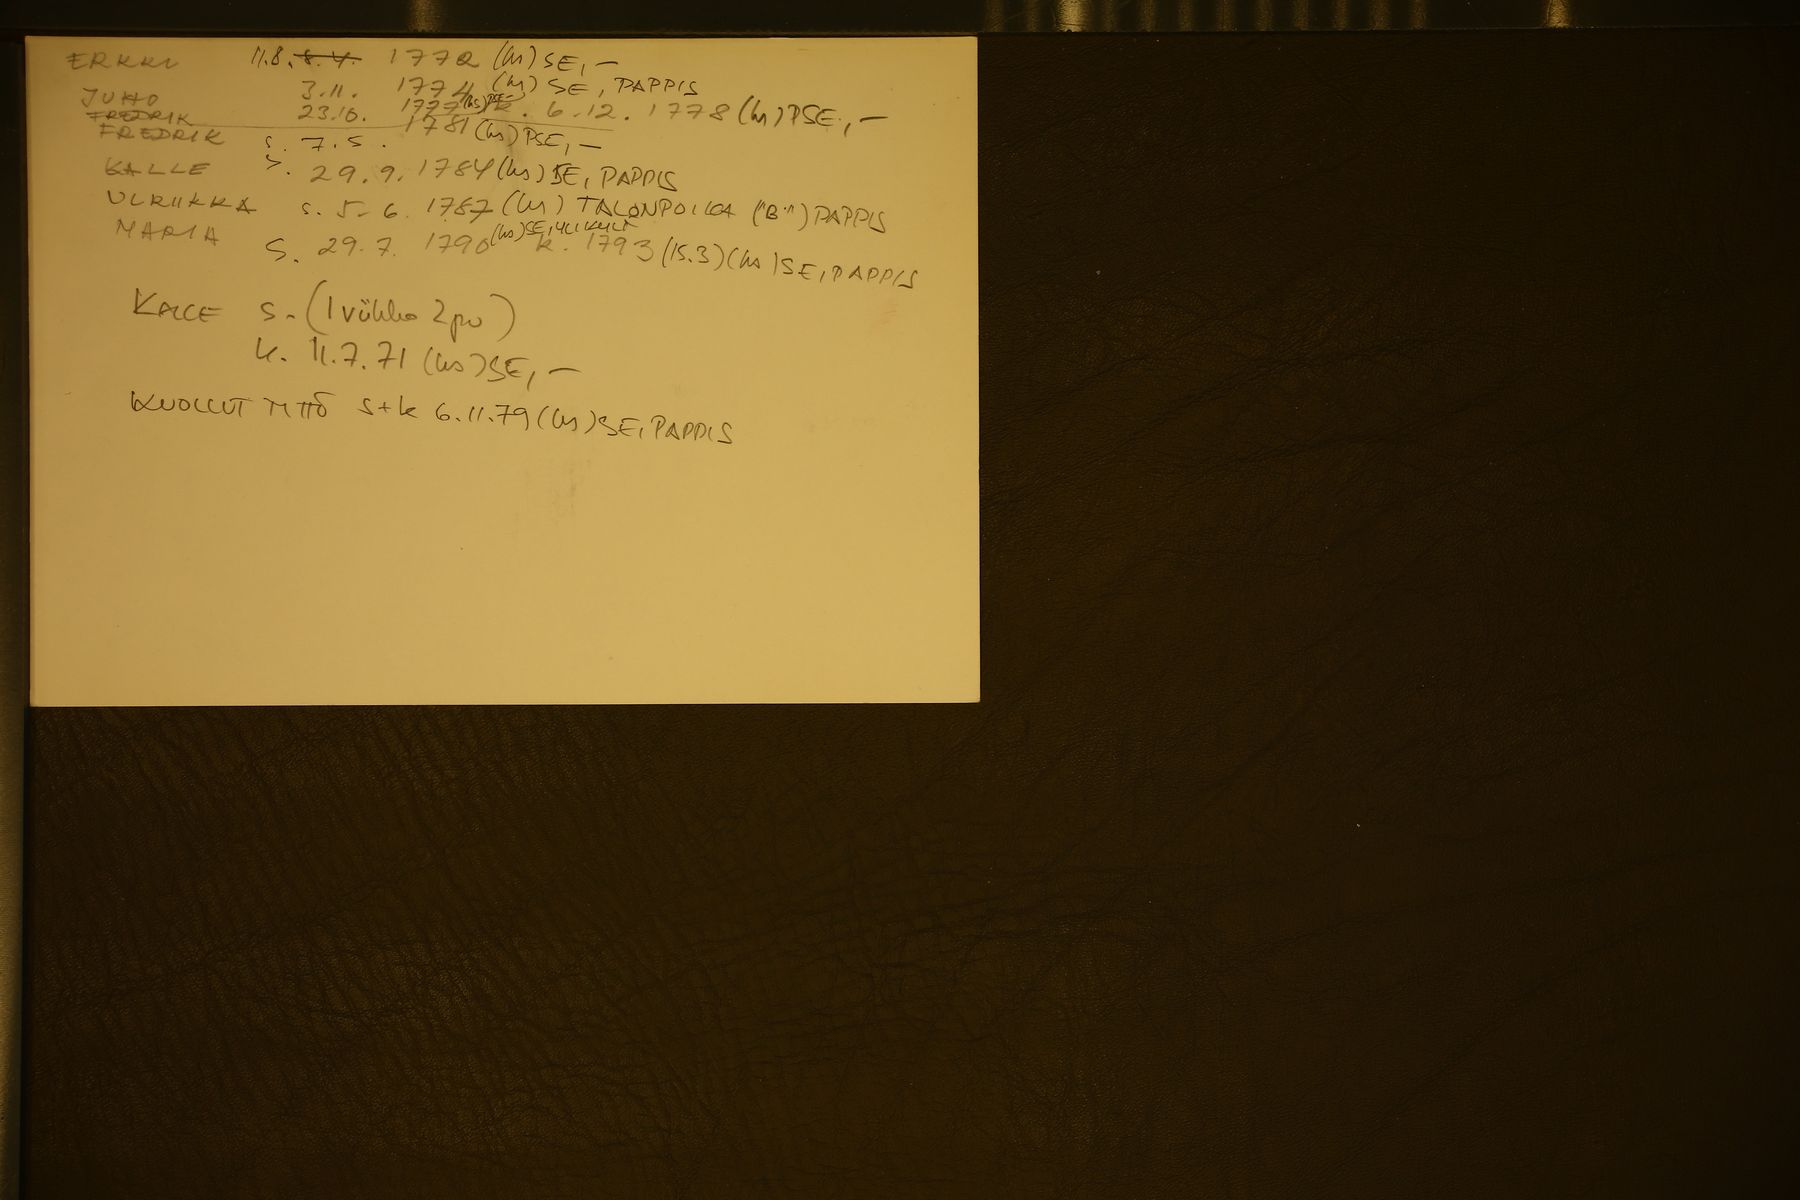 ERKKI 11.8. 8.4. 1772 (hs) SE, –
JUHO 3.11. 1774 (hs) SE, PAPPIS
FREDRIK 23.10. 1777 (hs) PSE – k. 6.12. 1778 (hs) PSE, –
FREDRIK s. 7.5. 1781 (hs) PSE, –
KALLE s. 29.9. 1784 (hs) SE, PAPPIS
ULRIIKKA s. 5.6. 1787 (hs) TALONPOIKA ("B:") PAPPIS
MARIA s. 29.7. 1790 (hs) SE, k. 1793 (15.3) (hs) SE, PAPPIS
KALLE s. (1 viikko 2 pv)
k. 11.7.71 (hs) SE, –
KUOLLUT TYTTÖ s+k 6.11.79 (hs) SE, PAPPIS